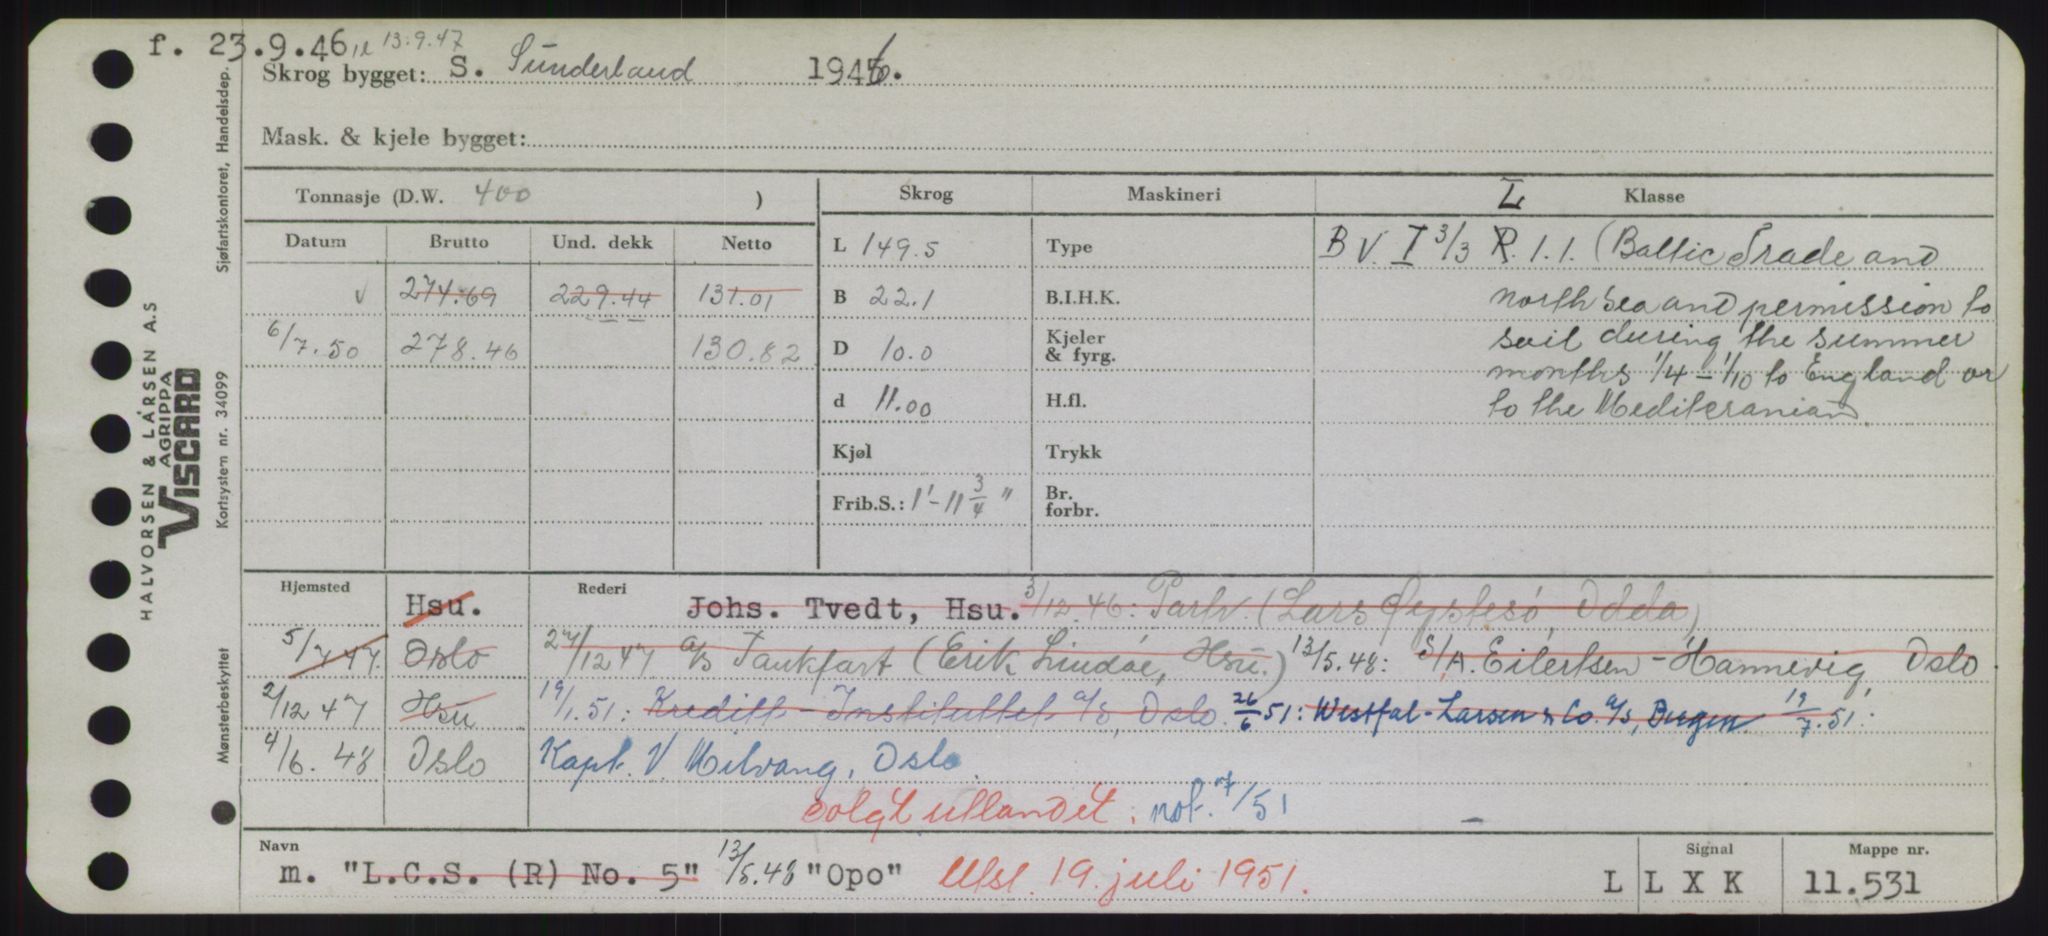 f. 23.9.46 13.9.47
Skrog bygget: S. Sunderland 1946.
Mask. & kjele bygget:
Tonnasje (D.W. 400 ) Skrog Maskineri L Klasse
Datum Brutto Und. dekk Netto
L 149.5 Type B V. I 3/3 R. 1.1. (Baltic Trade and
√ 274.69 229.44 131.01 B 22.1 B.I.H.K. north sea and permission to
6/7.50 278.46 130.82 D 10.0 Kjeler & fyrg. sail during the summer
months 1/4 - 1/10 to England or
d 11.00 H.fl. to the Mediteranian
Kjøl Trykk
Frib.S.: 1'-11 3/4 " Br. forbr.
Hjemsted Rederi
Hsu. Johs. Tvedt, Hsu. 3/12.46: Partr. (Lars Øystesø, Odda)
5/7 47. Oslo 27/12 47 a/s Tankfart (Erik Lindøe, Hsu.) 13/5.48: S/A. Eilertsen-Hannevig, Oslo
2/12 47 Hsu 19/1.51: Kreditt-Instituttet a/s, Oslo. 26/6 51: Westfal-Larsen & Co. a/s, Bergen. 19/7.51:
4/6. 48 Oslo Kapt. V. Milvang, Oslo.
solgt utlandet: not. /51
Navn Signal Mappe nr.
m. "L.C.S. (R) No. 5" 13/5.48 "Opo" Utsl. 19. juli 1951. L L X K 11.531
HALVORSEN & LARSEN A.S
AGRIPPA
VISCARD
Sjøfartskontoret, Handelsdep.
Kortsystem nr. 34099
Mønsterbeskyttet